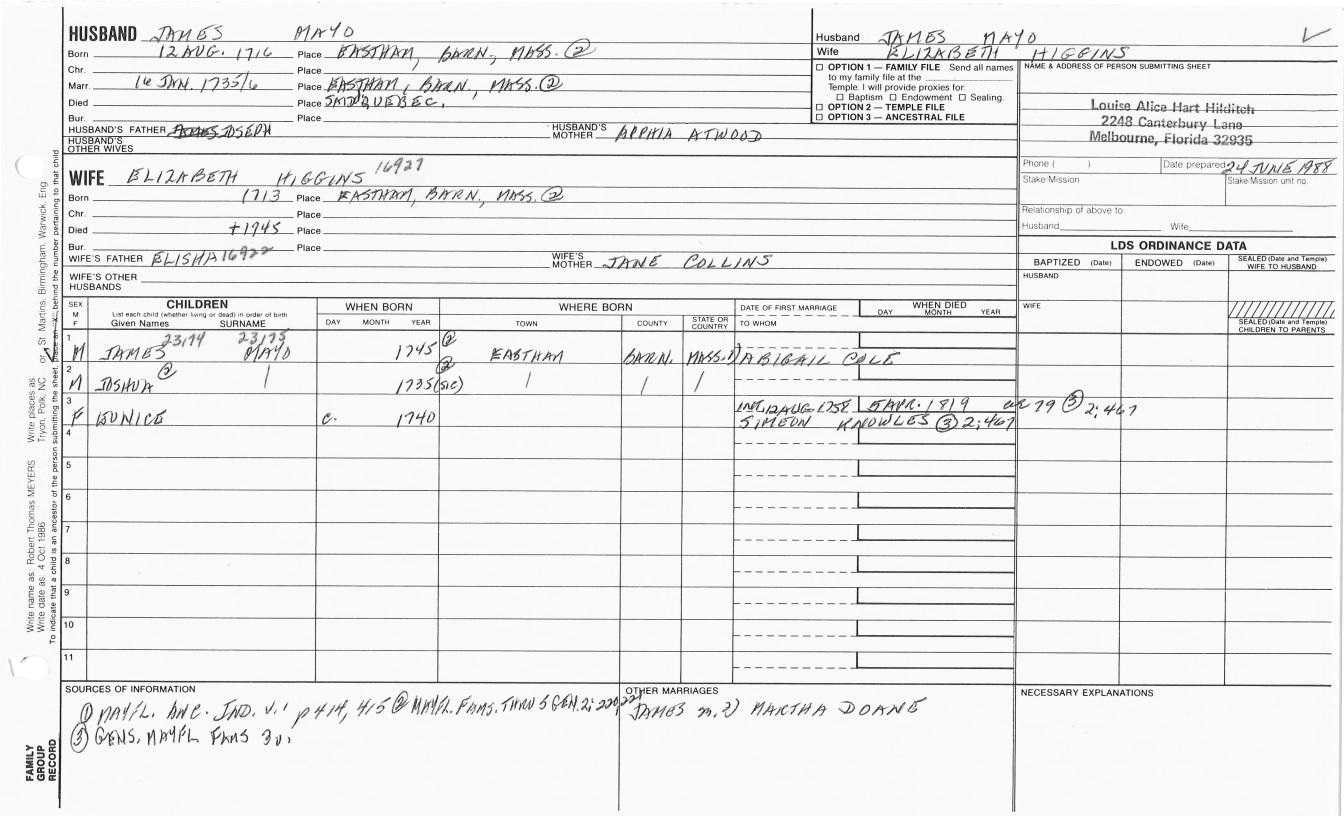 HUSBAND JAMES MAYO
Born 12 AUG. 1716 Place EASTHAM, BARN., MASS. (2)
Chr. Place
Marr. 16 JAN. 1735/6 Place EASTHAM, BARN., MASS. (2)
Died Place SAID QUEBEC.
Bur. Place
HUSBAND'S FATHER JOSEPH HUSBAND'S MOTHER APPHIA ATWOOD
HUSBAND'S OTHER WIVES
Husband JAMES MAYO
Wife ELIZABETH HIGGINS
☐ OPTION 1 — FAMILY FILE Send all names
to my family file at the
Temple. I will provide proxies for:
☐ Baptism ☐ Endowment ☐ Sealing.
☐ OPTION 2 — TEMPLE FILE
☐ OPTION 3 — ANCESTRAL FILE
NAME & ADDRESS OF PERSON SUBMITTING SHEET
Louise Alice Hart Hilditch
2248 Canterbury Lane
Melbourne, Florida 32935
Phone ( ) Date prepared 24 JUNE 1988
Stake/Mission Stake/Mission unit no.
Relationship of above to:
Husband Wife
WIFE ELIZABETH HIGGINS 16927
Born 1713 Place EASTHAM, BARN., MASS. (2)
Chr. Place
Died +1745 Place
Bur. Place
WIFE'S FATHER ELISHA 16922 WIFE'S MOTHER JANE COLLINS
WIFE'S OTHER HUSBANDS
LDS ORDINANCE DATA
BAPTIZED (Date) ENDOWED (Date) SEALED (Date and Temple) WIFE TO HUSBAND
HUSBAND
WIFE
SEALED (Date and Temple) CHILDREN TO PARENTS
SEX M F
CHILDREN
List each child (whether living or dead) in order of birth
Given Names SURNAME
WHEN BORN
DAY MONTH YEAR
WHERE BORN
TOWN COUNTY STATE OR COUNTRY
DATE OF FIRST MARRIAGE
TO WHOM
WHEN DIED
DAY MONTH YEAR
23,174 23,175 (2)
1 M JAMES MAYO 1745 EASTHAM BARN. MASS. 1) ABIGAIL COLE
2 M JOSHUA (2) 1735 (SIC) (2)
INT. 12 AUG. 1758 5 APR. 1819 ae 79 (3) 2:467
3 F EUNICE c. 1740 SIMEON KNOWLES (3) 2:467
4
5
6
7
8
9
10
11
SOURCES OF INFORMATION
(1) MAYFL. ANC. IND. V.1 p 414, 415 (2) MAYFL. FAMS. THRU 5 GEN. 2:220,221
(3) GENS. MAYFL FAMS 3v.
OTHER MARRIAGES
JAMES m. 2) MARTHA DOANE
NECESSARY EXPLANATIONS
Write name as: Robert Thomas MEYERS Write places as: Tryon, Polk, NC or St. Martins, Birmingham, Warwick, Eng
Write date as: 4 Oct 1986
To indicate that a child is an ancestor of the person submitting the sheet, place an "X" behind the number pertaining to that child.
FAMILY GROUP RECORD